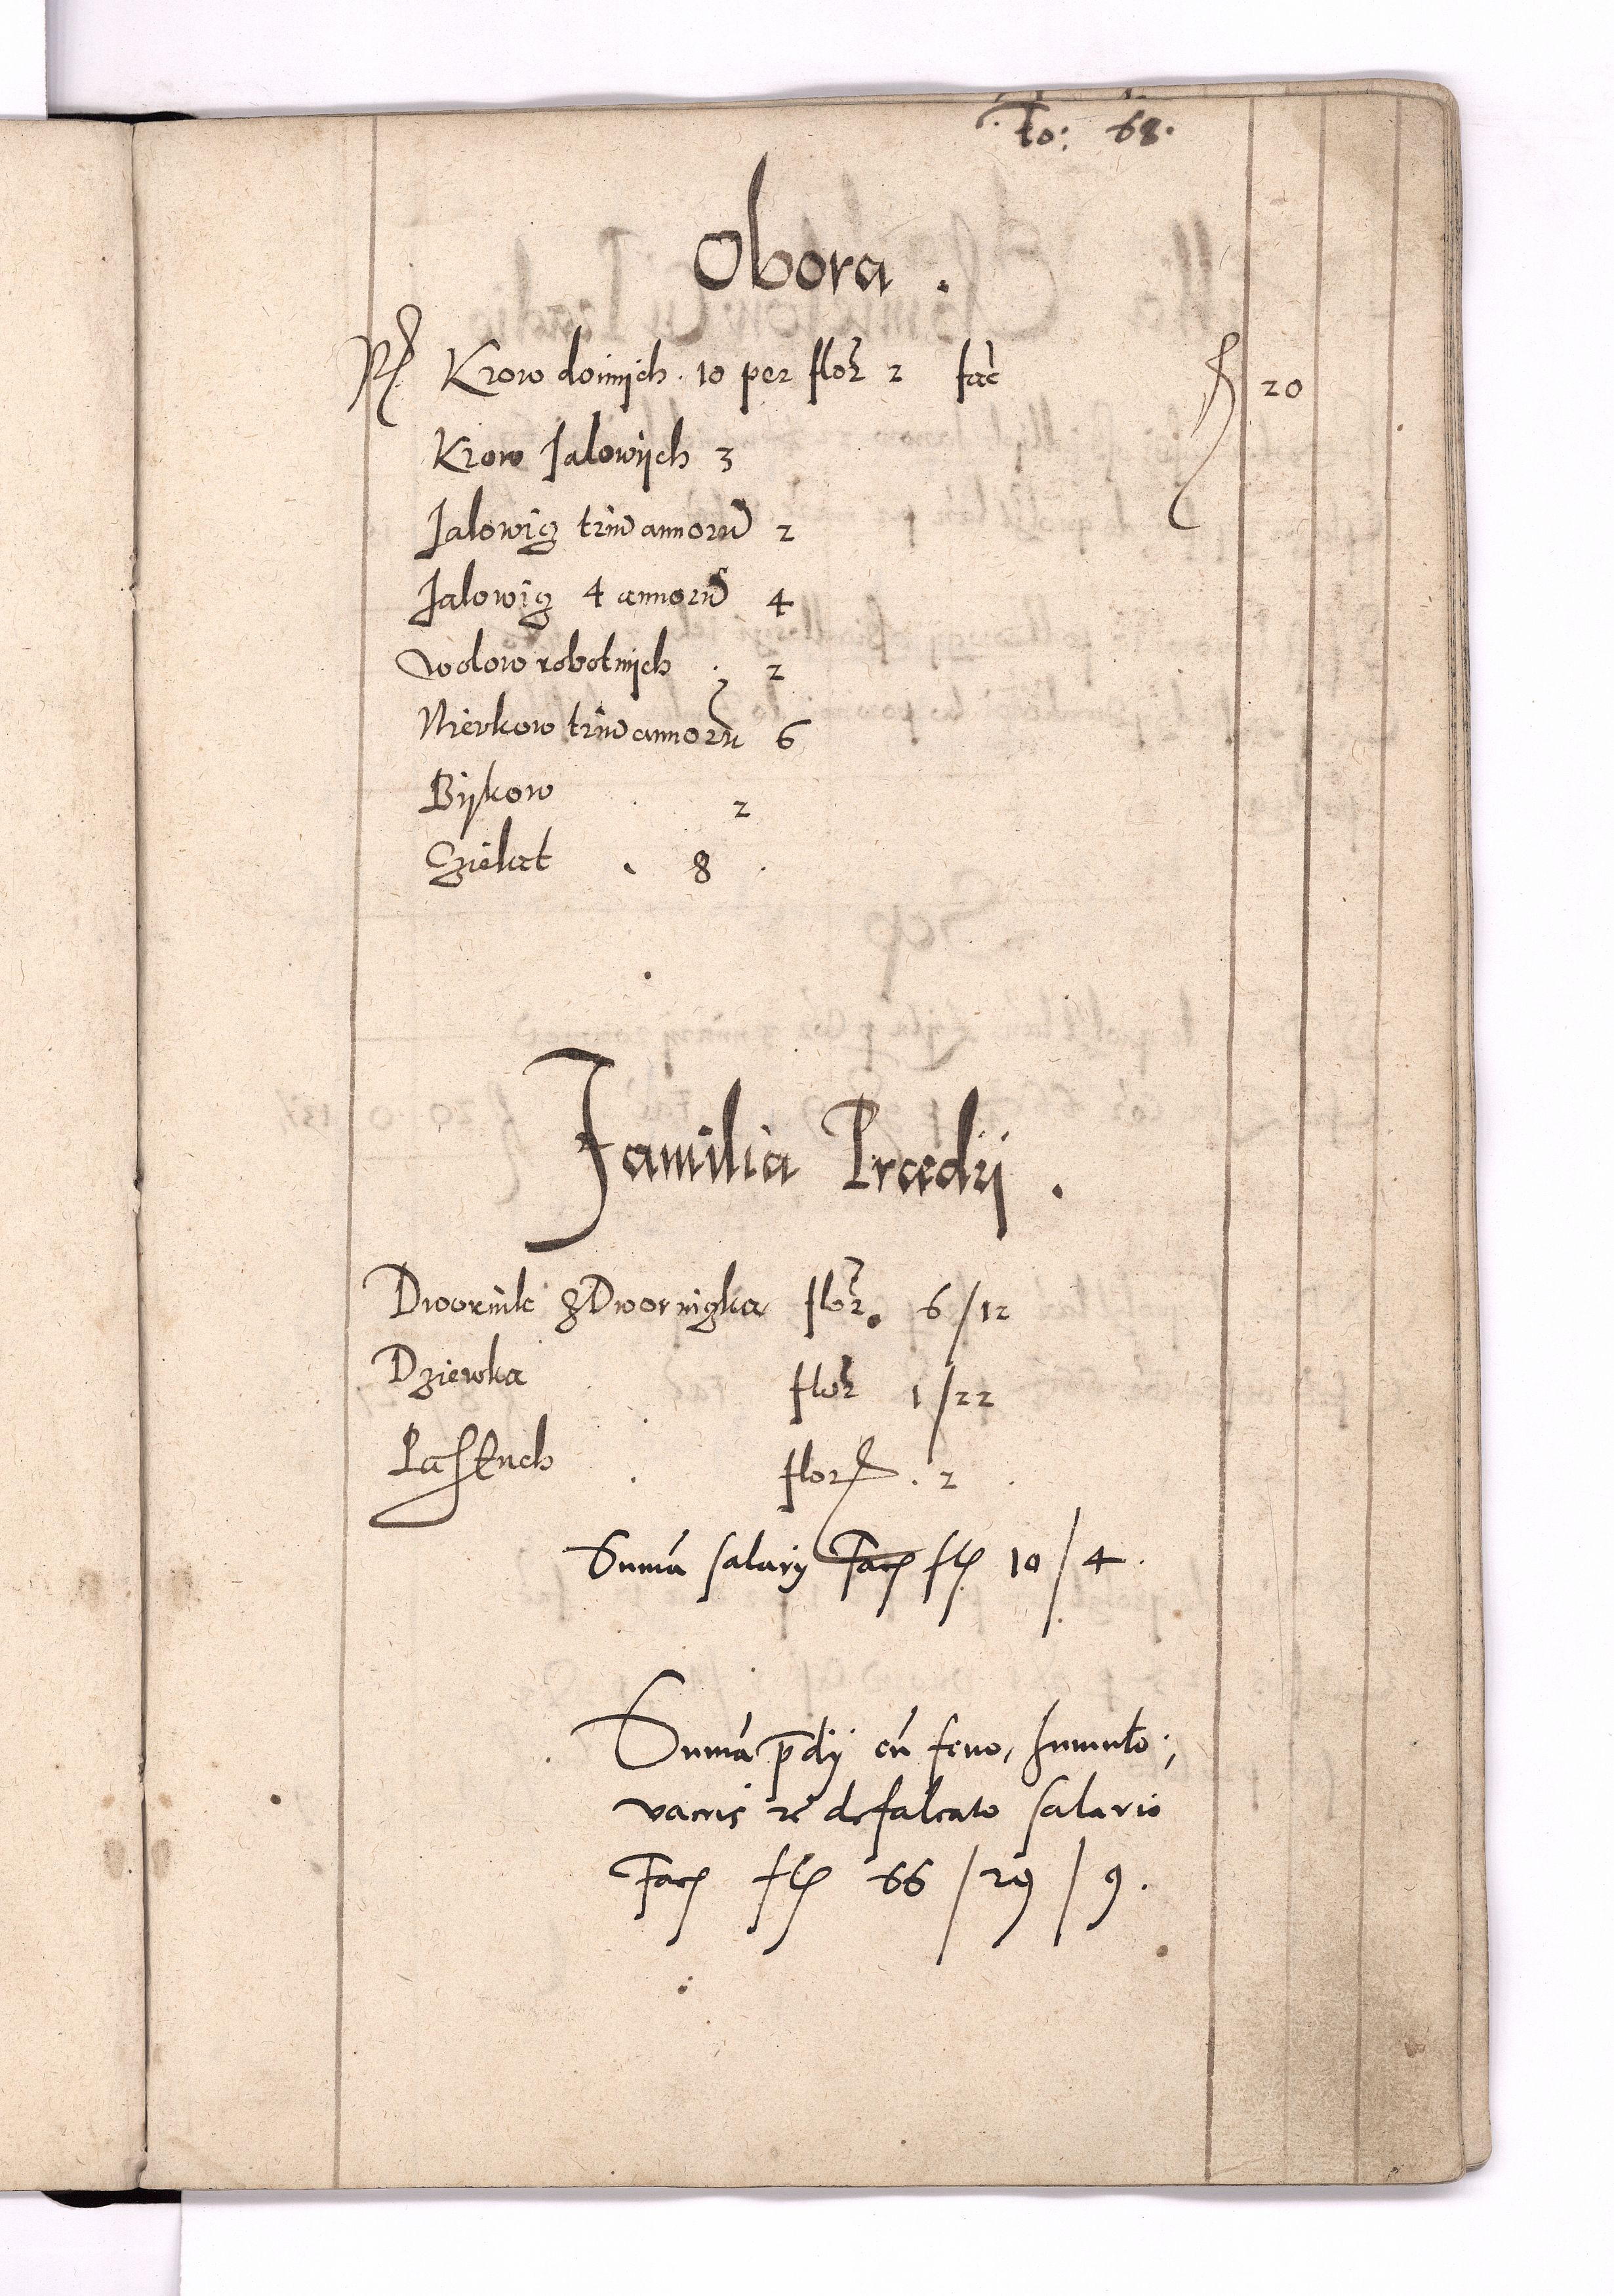 Fo: 68.
Obora.
Krow doinÿch. 10 per flor 2 fac̄ f 20
Krow Jalowÿch 3
Jalowig triū annorū 2
Jalowig 4 annorū 4
wolow robotnÿch. 2
Nievkow triū annorū 6
Bÿkow 2
Czielat. 8.
Familia Prædij.
Dwornik z Dwornigka flor. 6/12
Dziewka flor 1/22
Pastuch flor. 2.
Sum̄a salarÿ Fac fl 10/4.
Sum̄a p̄dÿ cū feno, humulo,
vaccis et defalcato salario
Fac fl 66/29/9.